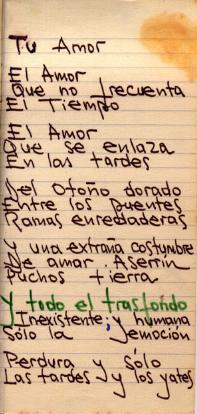 Tu Amor
El Amor
Que no frecuenta
El Tiempo
El Amor
Que se enlaza
En las tardes
Del Otoño dorado
Entre los puentes
Ramas enredaderas
Y una extraña costumbre
De amar Aserrín
Puchos tierra
Y todo el trasfondo
Inexistente; y humana
Sólo la emoción
Perdura y Sólo
Las tardes y los yates